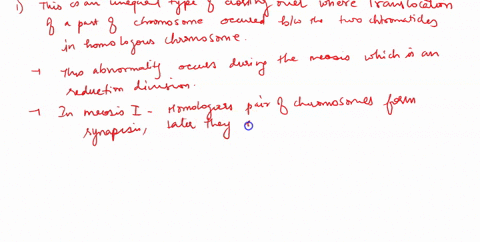 i) This is an unequal type of crossing over where translocation
of a part of chromosome occured b/w the two chromatides
in homologous chromosome.
→ This abnormality occurs during the meosis which is an
reduction division.
→ In meosis I - Homologous pair of chromosomes form
synapsis, later they